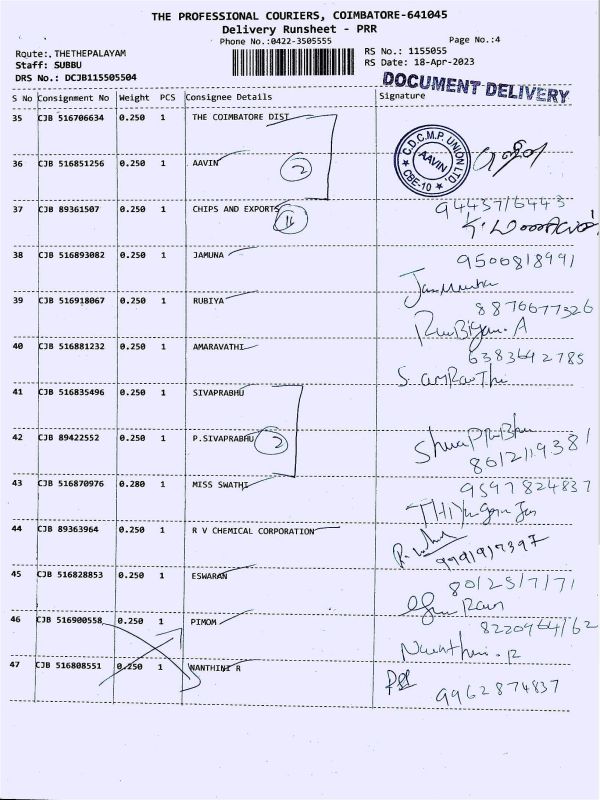 THE PROFESSIONAL COURIERS, COIMBATORE-641045
Delivery Runsheet - PRR
Phone No.:0422-3505555
Page No.:4
Route:. THETHEPALAYAM
Staff: SUBBU
DRS No.: DCJB115505504
RS No.: 1155055
RS Date: 18-Apr-2023
DOCUMENT DELIVERY
S No Consignment No Weight PCS Consignee Details Signature
35 CJB 516706634 0.250 1 THE COIMBATORE DIST
C.D.C.M.P. UNION LTD. AAVIN CBE-10
36 CJB 516851256 0.250 1 AAVIN 2
37 CJB 89361507 0.250 1 CHIPS AND EXPORTS 9443716443
38 CJB 516893082 0.250 1 JAMUNA 9500818991
Jamuna
39 CJB 516918067 0.250 1 RUBIYA 8870677326
40 CJB 516881232 0.250 1 AMARAVATHI 6383642785
41 CJB 516835496 0.250 1 SIVAPRABHU
42 CJB 89422552 0.250 1 P.SIVAPRABHU 2
8012119381
43 CJB 516870976 0.280 1 MISS SWATHI 9597824837
44 CJB 89363964 0.250 1 R V CHEMICAL CORPORATION
45 CJB 516828853 0.250 1 ESWARAN
46 CJB 516900558 0.250 1 PIMOM
47 CJB 516808551 0.250 1 NANTHINI R
9962874837